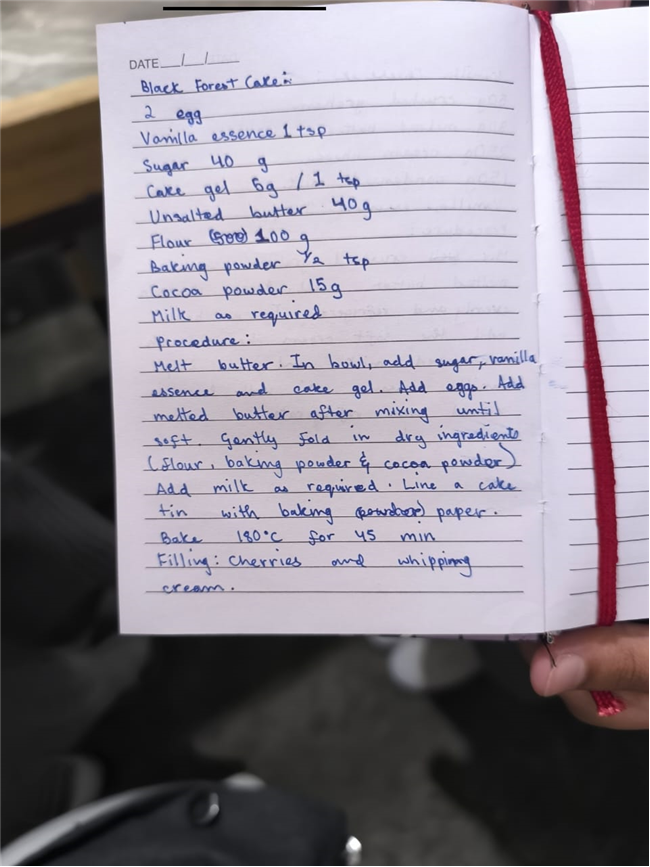 DATE__/__/__
Black Forest Cake:
2 egg
Vanilla essence 1 tsp
Sugar 40 g
Cake gel 5g / 1 tsp
Unsalted butter 40g
Flour 100 g
Baking powder 1/2 tsp
Cocoa powder 15g
Milk as required
Procedure:
Melt butter. In bowl, add sugar, vanilla
essence and cake gel. Add eggs. Add
melted butter after mixing until
soft. Gently fold in dry ingredients
(flour, baking powder & cocoa powder)
Add milk as required. Line a cake
tin with baking paper.
Bake 180°C for 45 min
Filling: Cherries and whipping
cream.